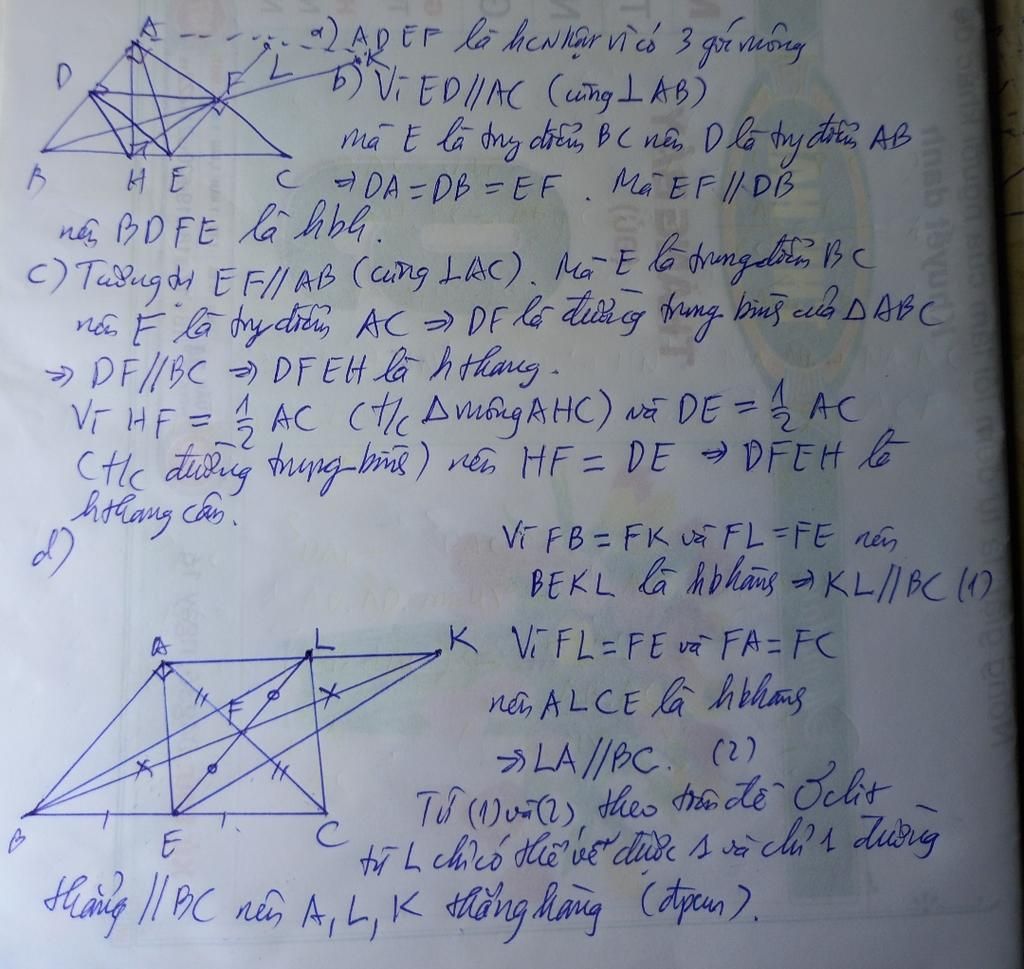 A
a) ADEF là hcNhật vì có 3 góc vuông
D F L K
b) Vì ED//AC (cùng ⊥AB)
mà E là trg điểm BC nên D là trg điểm AB
B H E C
⇒ DA = DB = EF. Mà EF//DB
nên BDFE là hbh.
c) Tương tự EF//AB (cùng ⊥AC). Mà E là trung điểm BC
nên F là trg điểm AC ⇒ DF là đường trung bình của ΔABC
⇒ DF//BC ⇒ DFEH là hthang.
Vì HF = 1/2 AC (t/c Δ vuông AHC) và DE = 1/2 AC
(t/c đường trung bình) nên HF = DE ⇒ DFEH là
hthang cân.
d)
Vì FB = FK và FL = FE nên
BEKL là hbhàng ⇒ KL//BC (1)
A L K
Vì FL = FE và FA = FC
F
nên ALCE là hbhàng
⇒ LA//BC. (2)
B E C
Từ (1) và (2), theo tiên đề Ơclit
từ L chỉ có thể vẽ được 1 và chỉ 1 đường
thẳng //BC nên A, L, K thẳng hàng (đpcm).